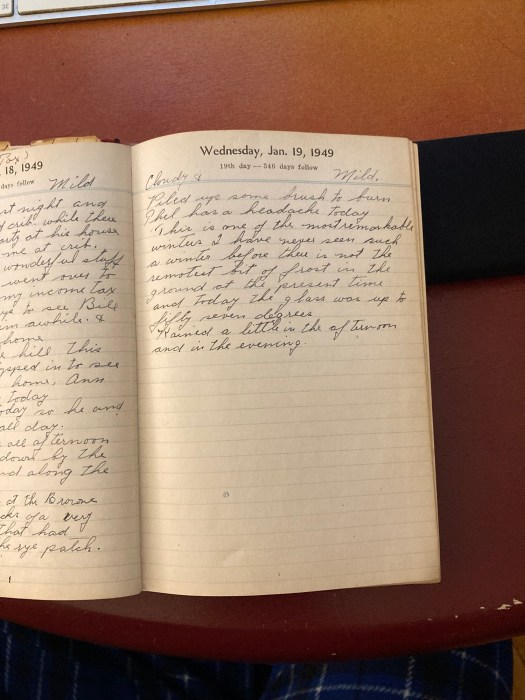 Tax)
18, 1949
days follow
Mild
st night and
crib. while there
at his house
me at crib.
wonderful stuff
went over to
my income tax
to see Bill
awhile. &
home
hill this
in to see
home, Ann
today
today so he and
all day.
all afternoon
down by the
along the
at the Browne
of a very
That had
rye patch.
1
Wednesday, Jan. 19, 1949
19th day — 346 days follow
Cloudy & Mild.
Piled up some brush to burn
Thel has a headache today
This is one of the most remarkable
winters I have never seen such
a winter before there is not the
remotest bit of frost in the
ground at the present time
and today the glass was up to
fifty seven degrees
Rained a little in the afternoon
and in the evening.